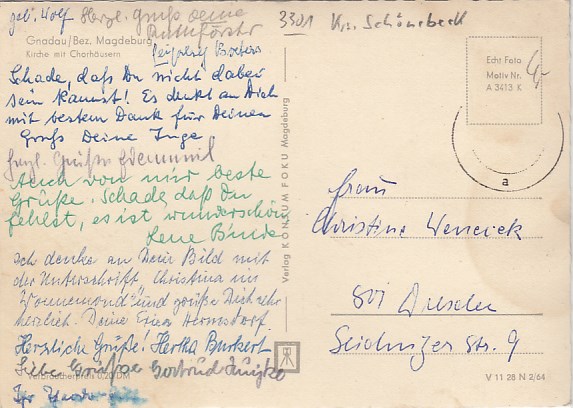 geb. Wolf Herzl. Gruß deine
3301 Krs. Schönebeck
Gnadau/Bez. Magdeburg
Kirche mit Chorhäusern
Schade, daß Du nicht dabei
sein kannst! Es denkt an Dich
mit bestem Dank für Deinen
Gruß Deine Inge
Herzl. Grüße
Auch von mir beste
Grüße. Schade, daß Du
fehlst, es ist wunderschön
Lene
Ich denke an Dein Bild mit
der Unterschrift „Christina im
Wonnemond“ und grüße Dich sehr
herzlich. Deine Erica Hermsdorf.
Herzliche Grüße! Hertha Burkert
Liebe Grüße Gertrud
Verlag KONSUM FOKU Magdeburg
Echt Foto
Motiv Nr.
A 3413 K
4,-
a
Frau
Christine
801 Dresden
Seidnitzer Str. 9
V 11 28 N 2/64